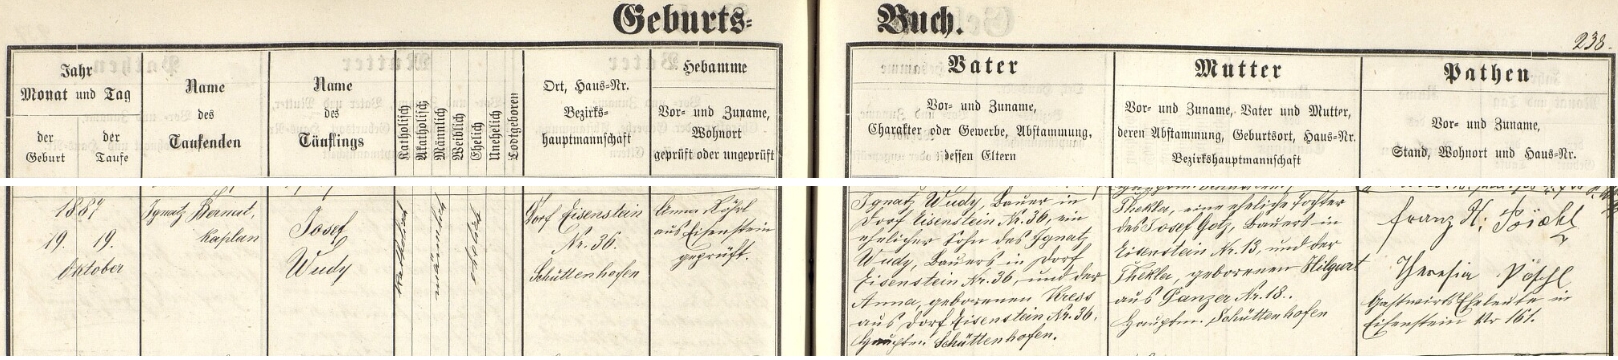 Geburts=
Buch.
238.
Jahr
Monat und Tag
der
Geburt
der
Taufe
Name
des
Taufenden
Name
des
Täuflings
Katholisch
Akatholisch
Männlich
Weiblich
Ehelich
Unehelich
Todtgeboren
Ort, Haus=Nr.
Bezirks=
hauptmannschaft
Hebamme
Vor= und Zuname,
Wohnort
geprüft oder ungeprüft
Vater
Vor= und Zuname,
Charakter oder Gewerbe, Abstammung,
dessen Eltern
Mutter
Vor= und Zuname, Vater und Mutter,
deren Abstammung, Geburtsort, Haus=Nr.
Bezirkshauptmannschaft
Pathen
Vor= und Zuname,
Stand, Wohnort und Haus=Nr.
1887
19. 19.
Oktober
Ignatz
Kaplan
Josef
Wudy
katholisch
männlich
ehelich
Dorf Eisenstein
Nr. 36.
Schüttenhofen
Anna
aus Eisenstein
geprüft.
Ignatz Wudy, Bauer in
Dorf Eisenstein Nr. 36, ein
ehelicher Sohn des Ignatz
Wudy, Bauers in Dorf
Eisenstein Nr. 36, und der
Anna, geborenen Kress
aus Dorf Eisenstein Nr. 36.
Hauptm. Schüttenhofen.
Thekla, eine eheliche Tochter
des Josef Götz, Bauers in
Eisenstein Nr. 13, und der
Thekla, geborenen Hilgart
aus Panzer Nr. 18.
Hauptm. Schüttenhofen
Franz
Theresia Pöschl
Gastwirts Eheleute in
Eisenstein Nr 161.